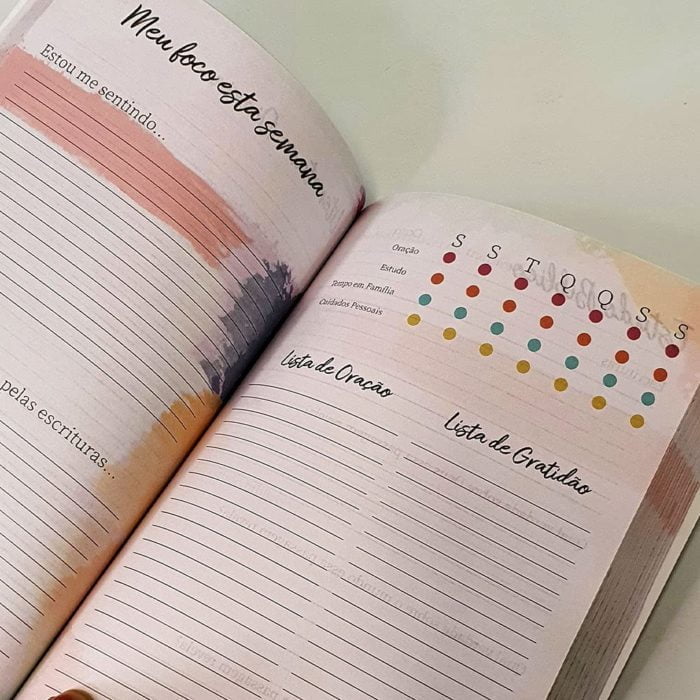 Meu foco esta semana
Estou me sentindo...
pelas escrituras...
S S T Q Q S S
Oração
Estudo
Tempo em Família
Cuidados Pessoais
Lista de Oração
Lista de Gratidão